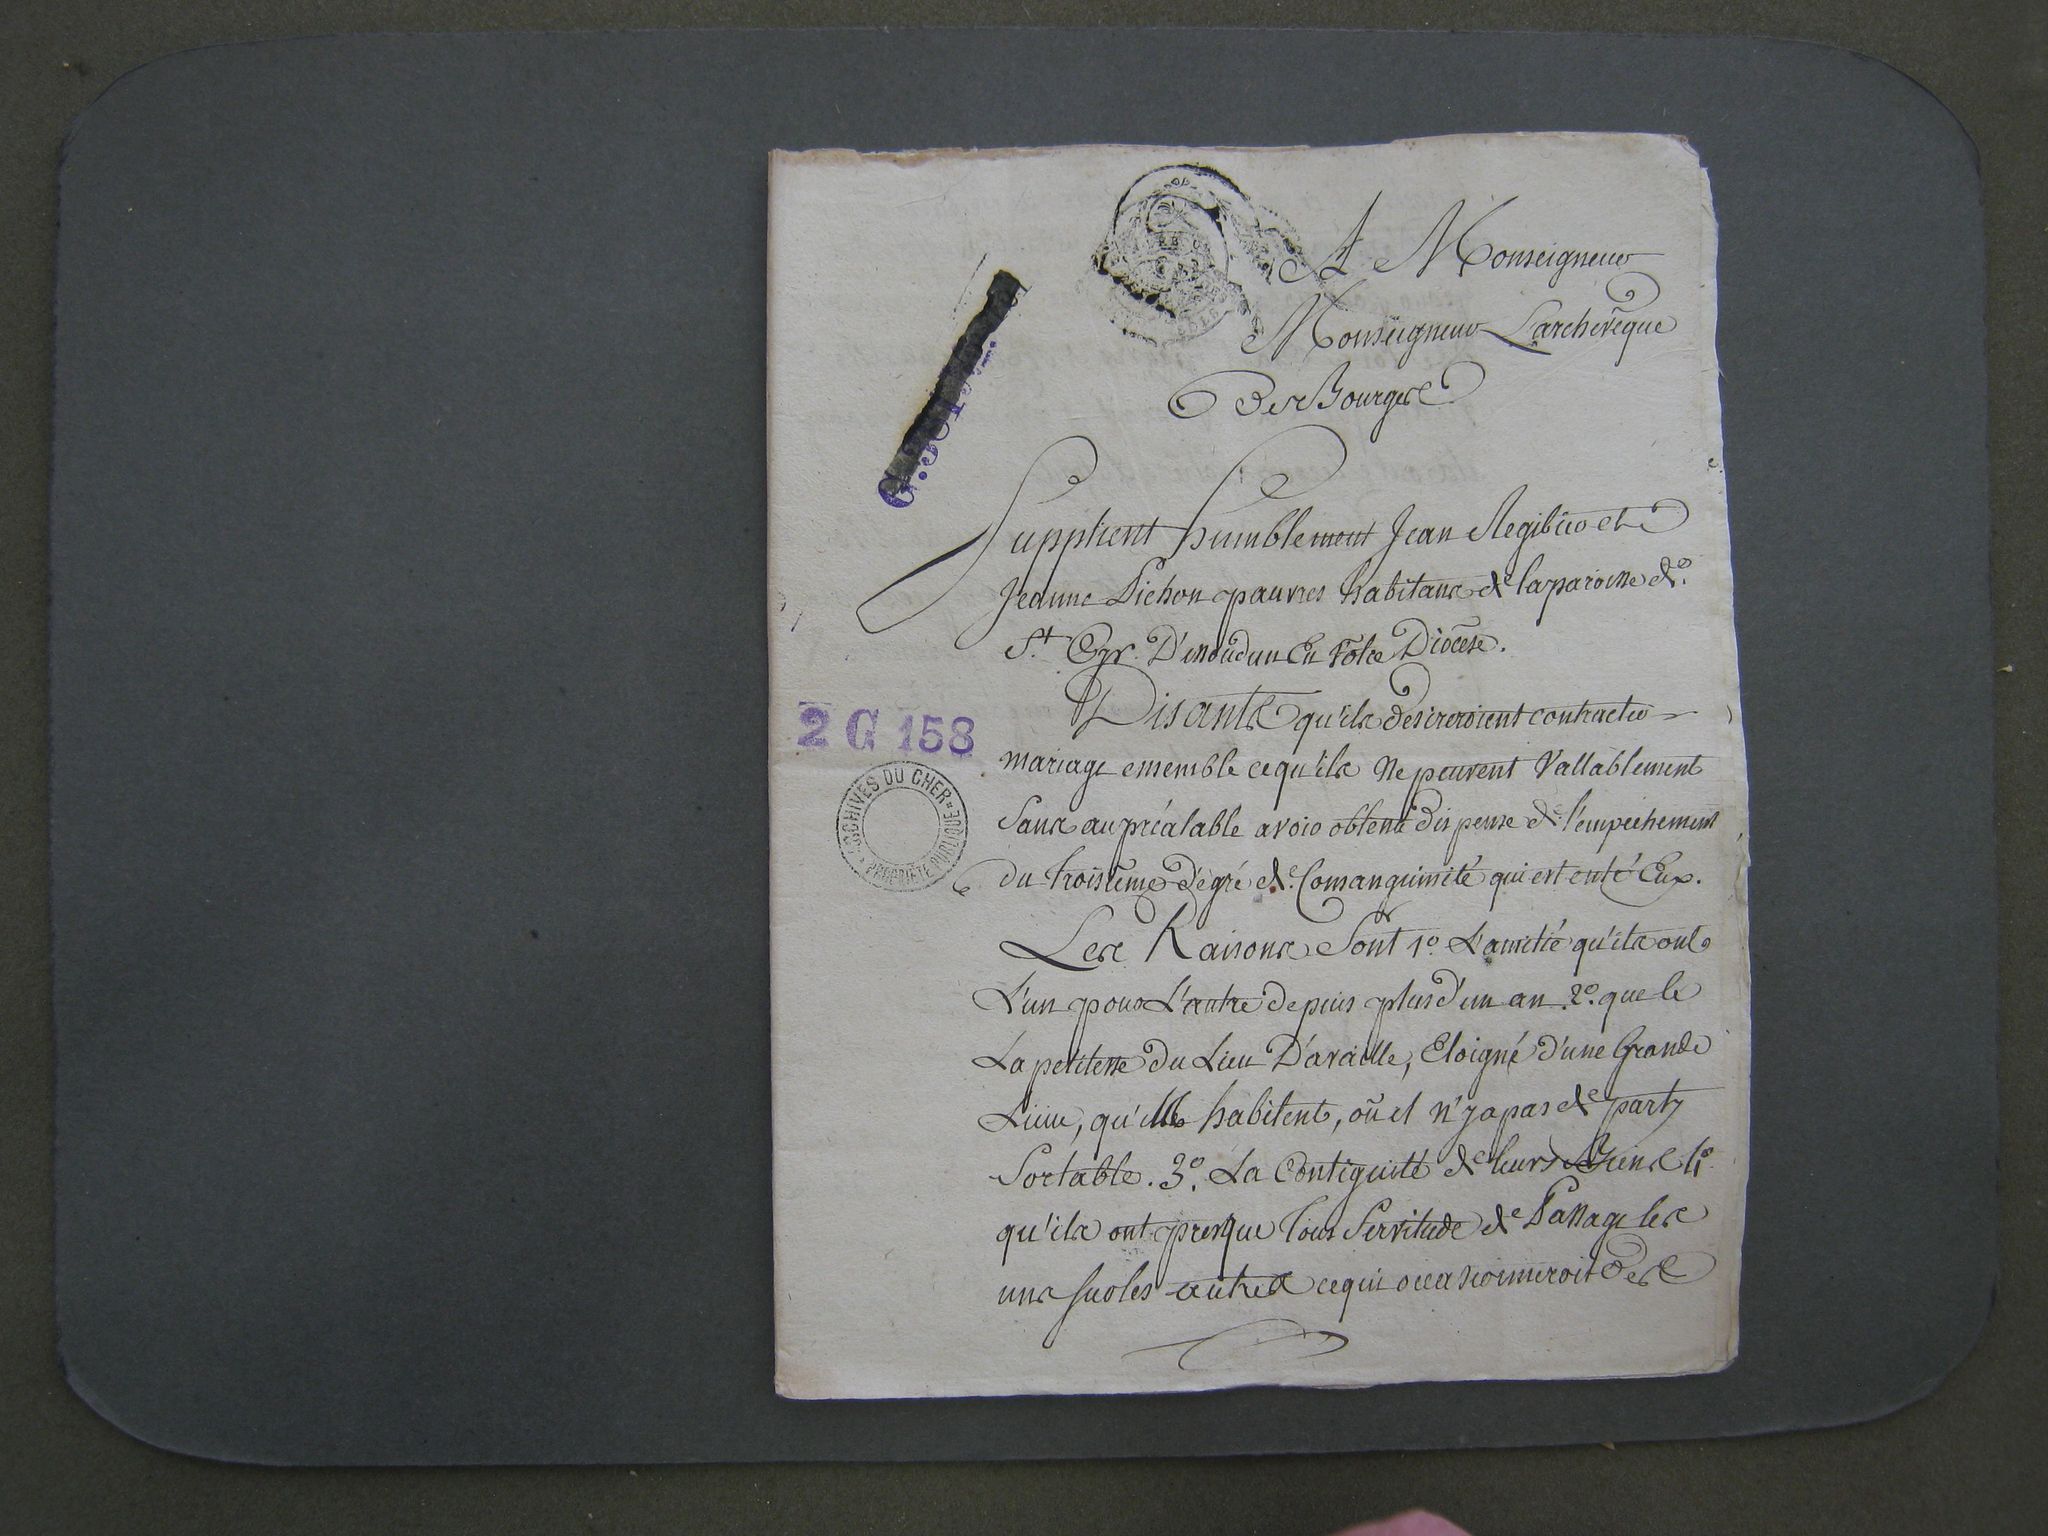 A Monseigneur
Monseigneur Larchevêque
De Bourges
Supplient humblement Jean Regibier et
Jeanne Pichon pauvres habitans de la paroisse de
St. Cyr D'issoudun En vôtre Diocèse.
Disants qu'ils desireroient contracter
mariage ensemble ce qu'ils Ne peuvent Vallablement
Sans au préalable avoir obtenu dispense de l'empêchement
du troisième dégré de Consanguinité qui est entre Eux.
Les Raisons Sont 1o. L'amitié qu'ils ont
L'un pour L'autre depuis plus d'un an. 2o. que le
La petitesse du Lieu D'availle, Eloigné d'une Grande
Lieue, qu'ils habitent, où il n'y a pas de party
Sortable. 3o. La Contiguité de leurs Biens 4o
qu'ils ont presque tous Servitude de Passage les
uns sur les autres ce qui occasionneroit Des
2 G 158
ARCHIVES DU CHER
PROPRIÉTÉ PUBLIQUE